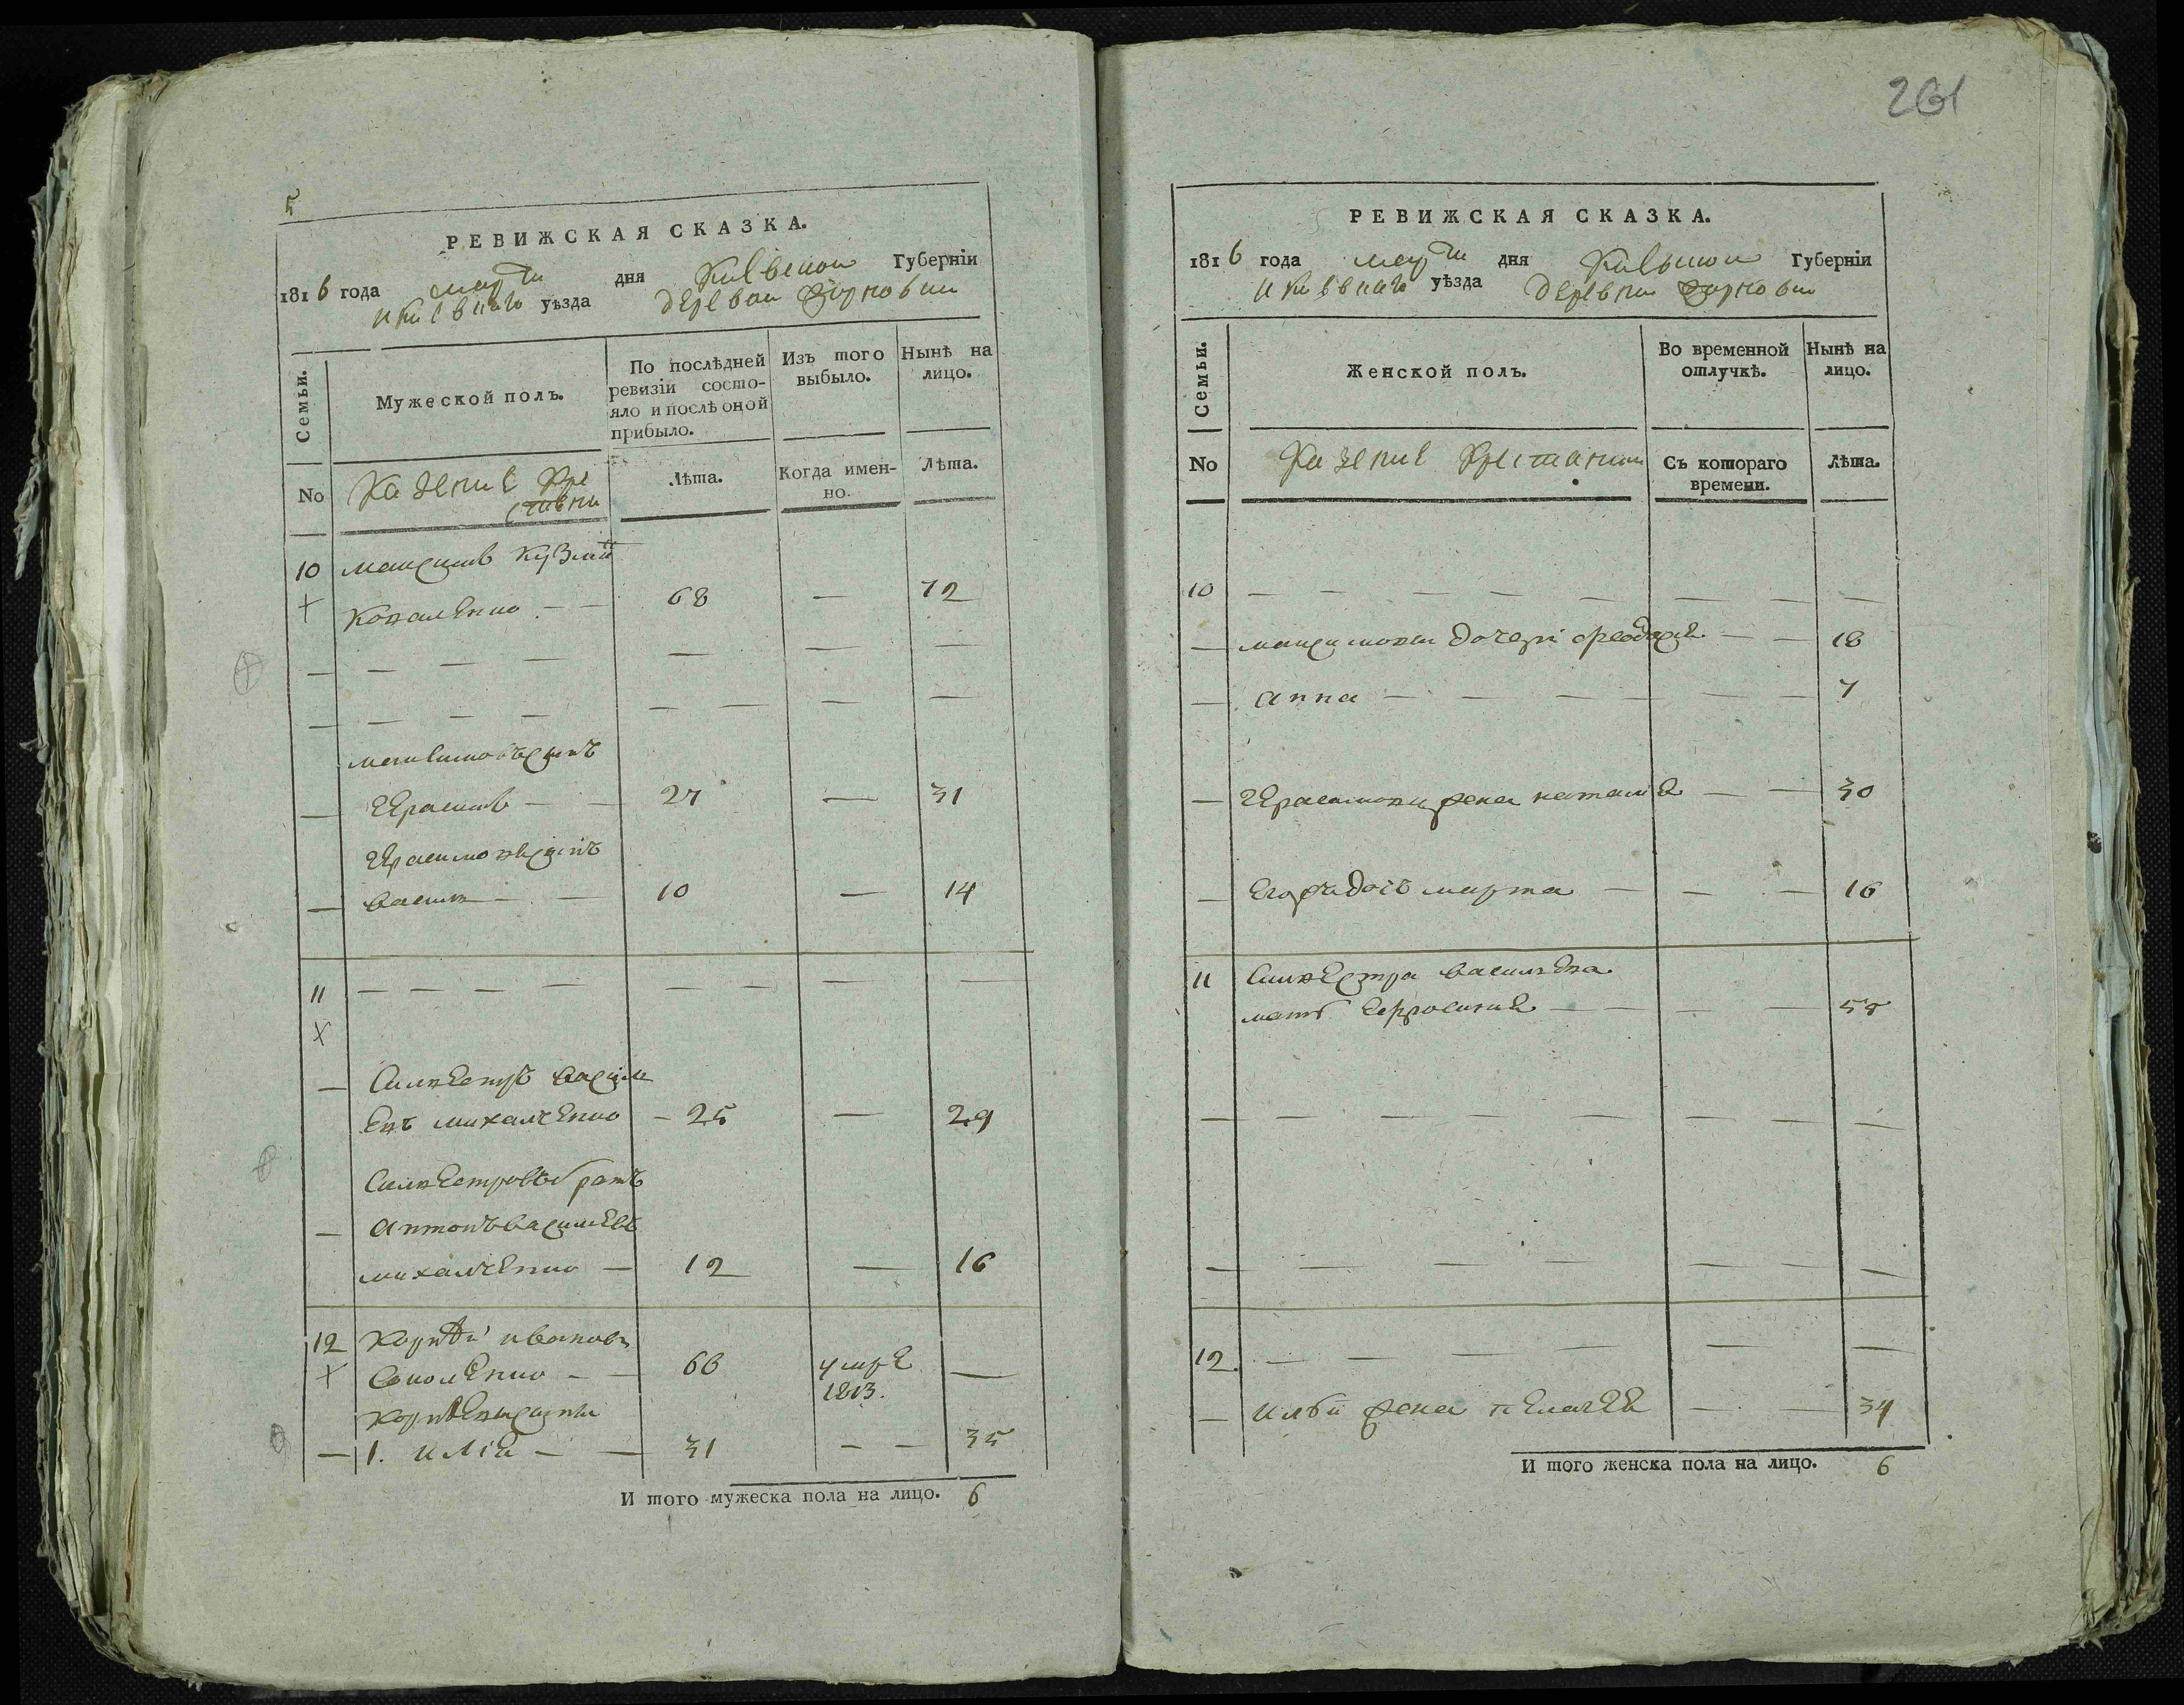 5
РЕВИЖСКАЯ СКАЗКА.
1816 года марта дня Киевской Губерніи
и Киевскаго уѣзда деревни
Семьи.
Мужеской полъ.
По послѣдней ревизіи состо-
яло и послѣ оной
прибыло.
Изъ того
выбыло.
Нынѣ на
лицо.
No
Казение Кре
стяни
Лѣта.
Когда имен-
но.
Лѣта.
10 максимъ Кузмїй
Коваленко — — 68 — 72
максимовъ синъ
— Герасимъ — — 27 — 31
Герасимовъ синъ
— василь — — 10 — 14
11 — — — — — — — —
— Силвестръ василь
евъ михалченко — 25 — 29
Силвестровъ братъ
— антонъ василевъ
михалченко — 12 — 16
12 Корнѣй ивановъ
Соколенко — — 66 умре —
1813.
Корнѣеви сини
— 1. илїа — — 31 — — 35
И того мужеска пола на лицо. 6
261
РЕВИЖСКАЯ СКАЗКА.
1816 года марта дня Киевской Губерніи
и Киевскаго уѣзда деревни
Семьи.
Женской полъ.
Во временной
отлучкѣ.
Нынѣ на
лицо.
No
Казение Крестянки
Съ котораго
времени.
Лѣта.
10 — — — — — — — —
— максимови дочери феодосия — — 18
— анна — — — — — 7
— Герасимова жена наталия — — 30
— Его дочь марта — — — 16
11 Силвестра василева
мать Ефросиния — — — — 55
— — — — — — — —
— — — — — — — —
12. — — — — — —
— илїи жена пелагея — — 34
И того женска пола на лицо. 6